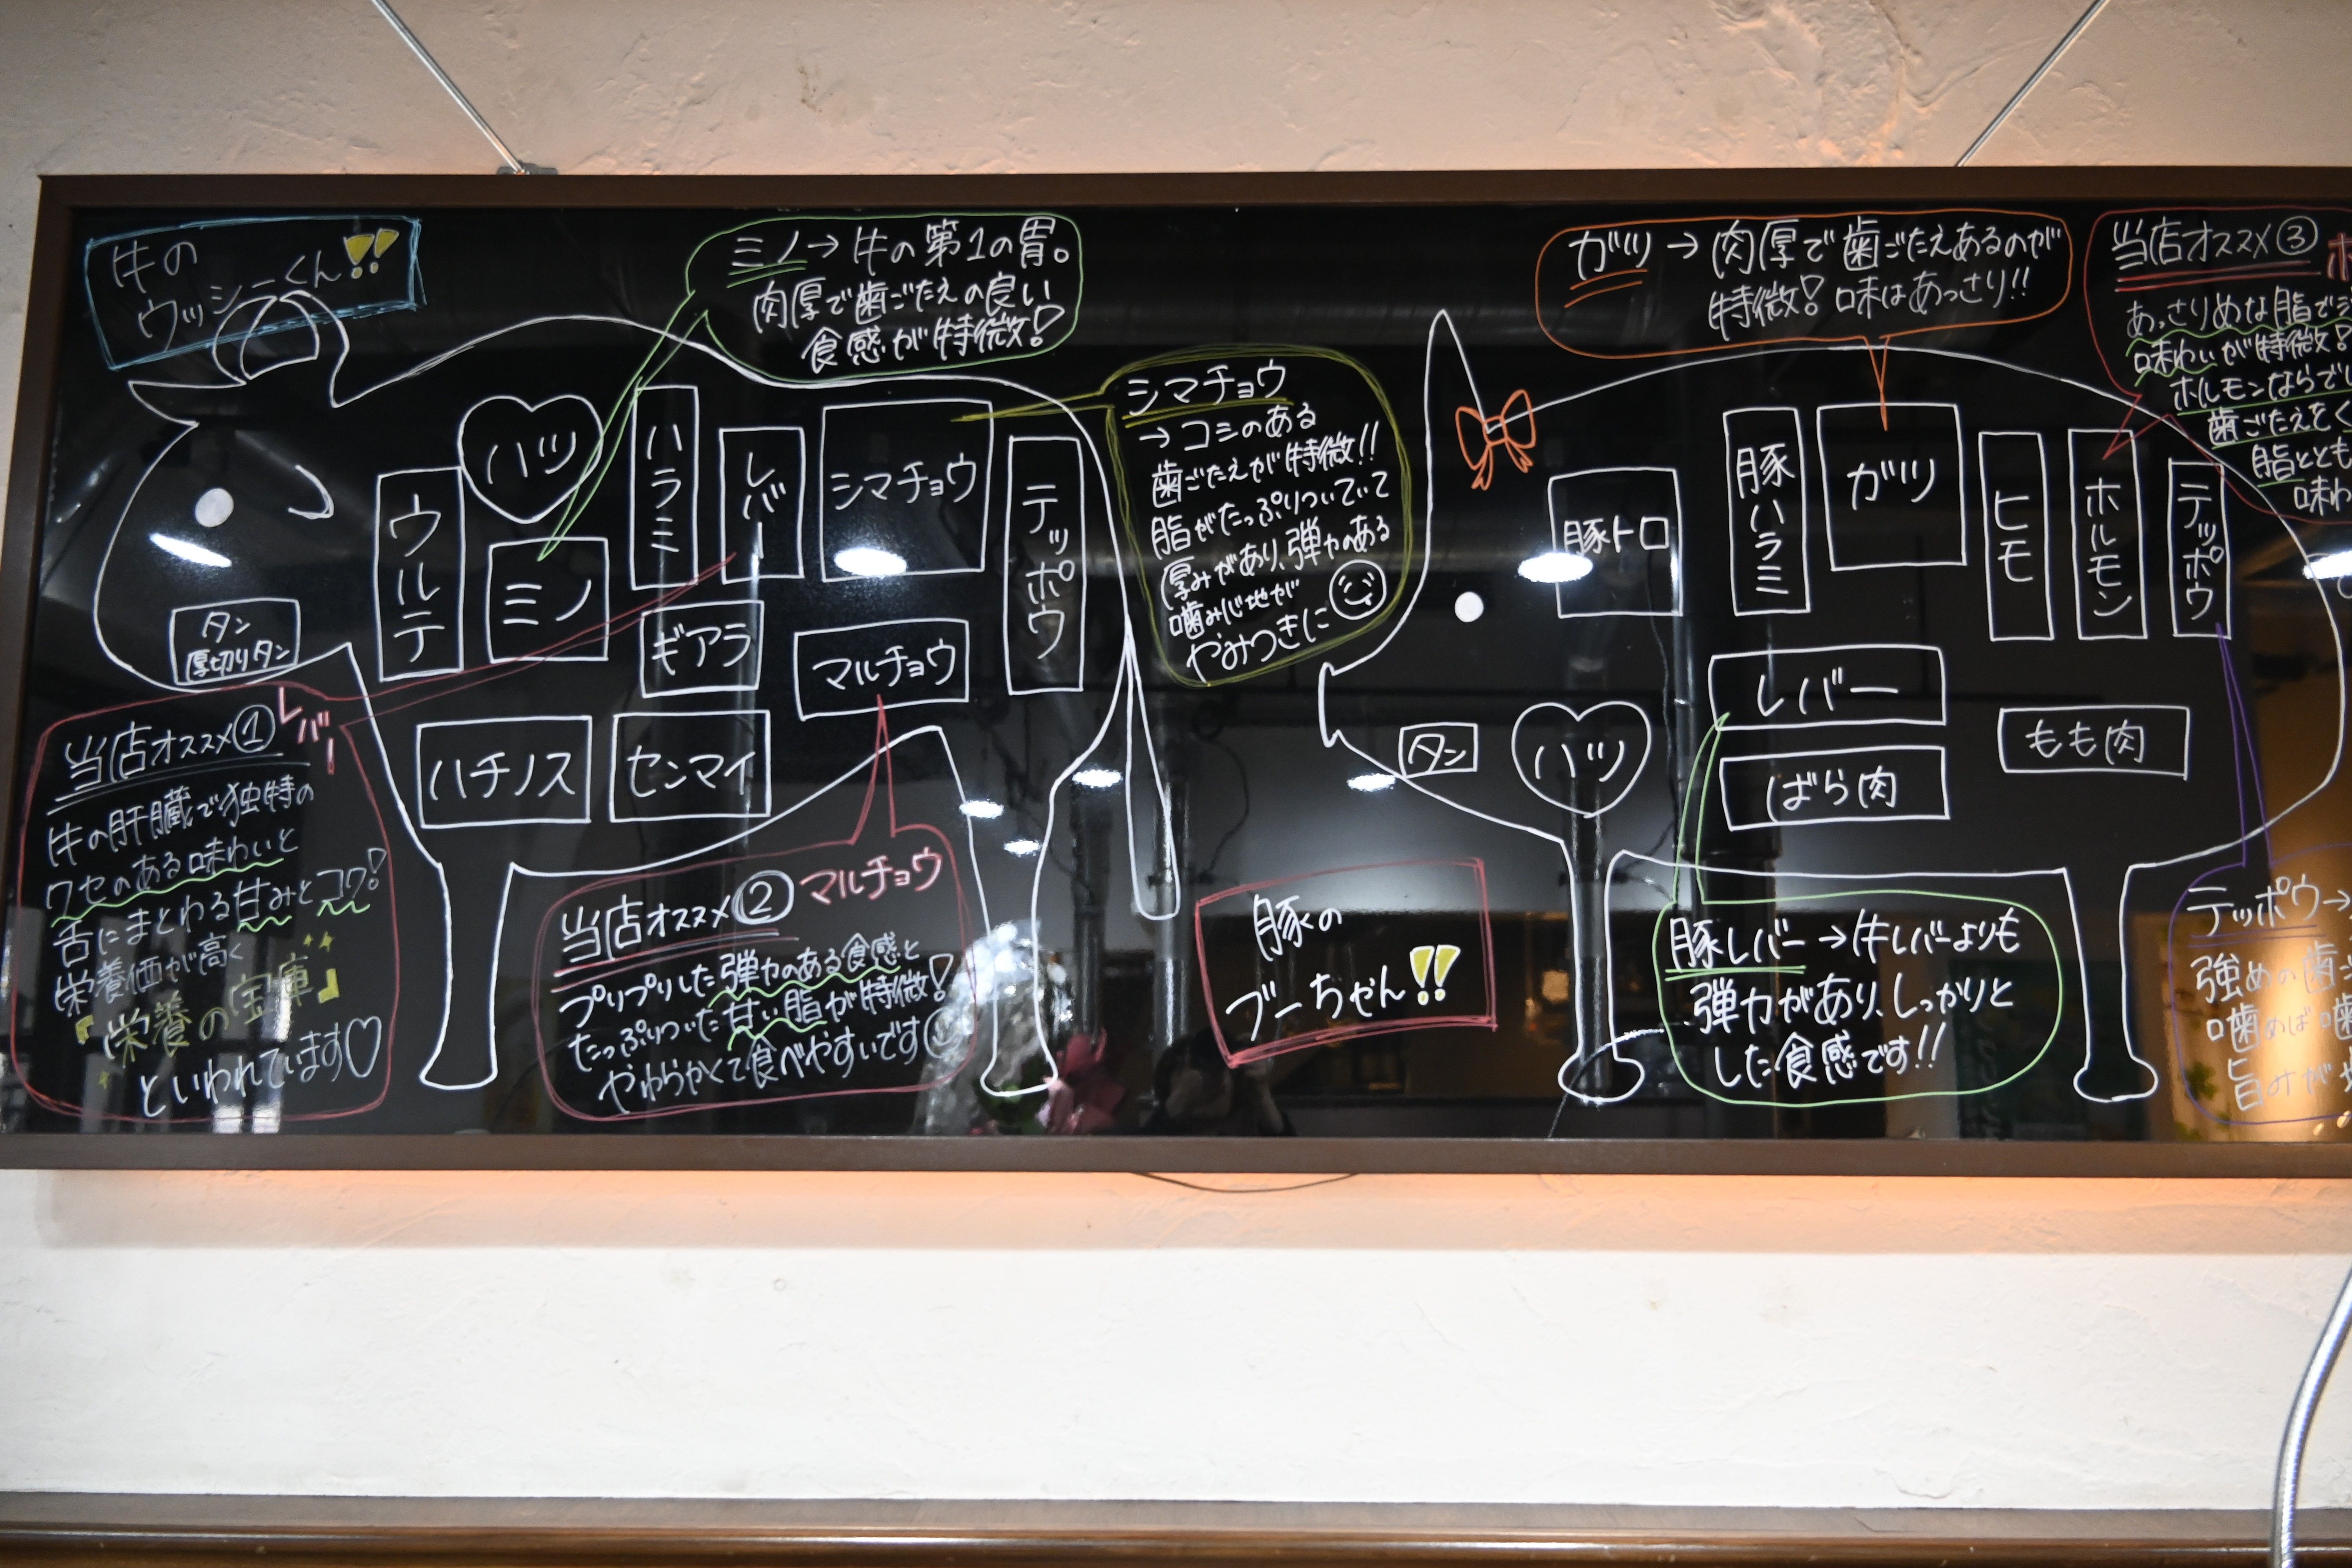 牛の
ウッシーくん!!
ミノ→牛の第1の胃。
肉厚で歯ごたえの良い
食感が特徴!
シマチョウ
→コシのある
歯ごたえが特徴!!
脂がたっぷりついていて
厚みがあり、弾力のある
噛み心地が
やみつきに
ハツ
ハラミ
レバー
シマチョウ
テッポウ
ウルテ
ミノ
ギアラ
マルチョウ
タン
厚切りタン
ハチノス
センマイ
当店オススメ① レバー
牛の肝臓で独特の
クセのある味わいと
舌にまとわる甘みとコク!
栄養価が高く
『栄養の宝庫』
といわれています♡
当店オススメ② マルチョウ
プリプリした弾力のある食感と
たっぷりついた甘い脂が特徴!
やわらかくて食べやすいです
ガツ→肉厚で歯ごたえあるのが
特徴!味はあっさり!!
当店オススメ③ ホ
あっさりめな脂で
味わいが特徴!
ホルモンならで
歯ごたえをく
脂ととも
味わ
豚トロ
豚ハラミ
ガツ
ヒモ
ホルモン
テッポウ
タン
ハツ
レバー
ばら肉
もも肉
豚の
ブーちゃん!!
豚レバー→牛レバーよりも
弾力があり、しっかりと
した食感です!!
テッポウ→
強めの歯ご
噛めば噛
旨みが